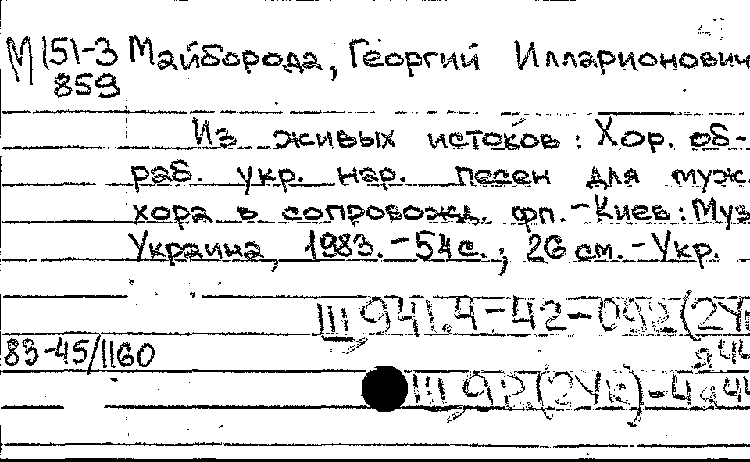 М 151-3 Майборода, Георгий Илларионович
859
Из живых истоков : Хор. об-
раб. укр. нар. песен для муж.
хора в сопровожд. фп. – Киев : Муз
Украина, 1983. – 54 с. ; 26 см. – Укр.
Ш, 941.4-42-092(2Ук
83-45/1160
я44
Ш, 92.(2Ук)-4я44